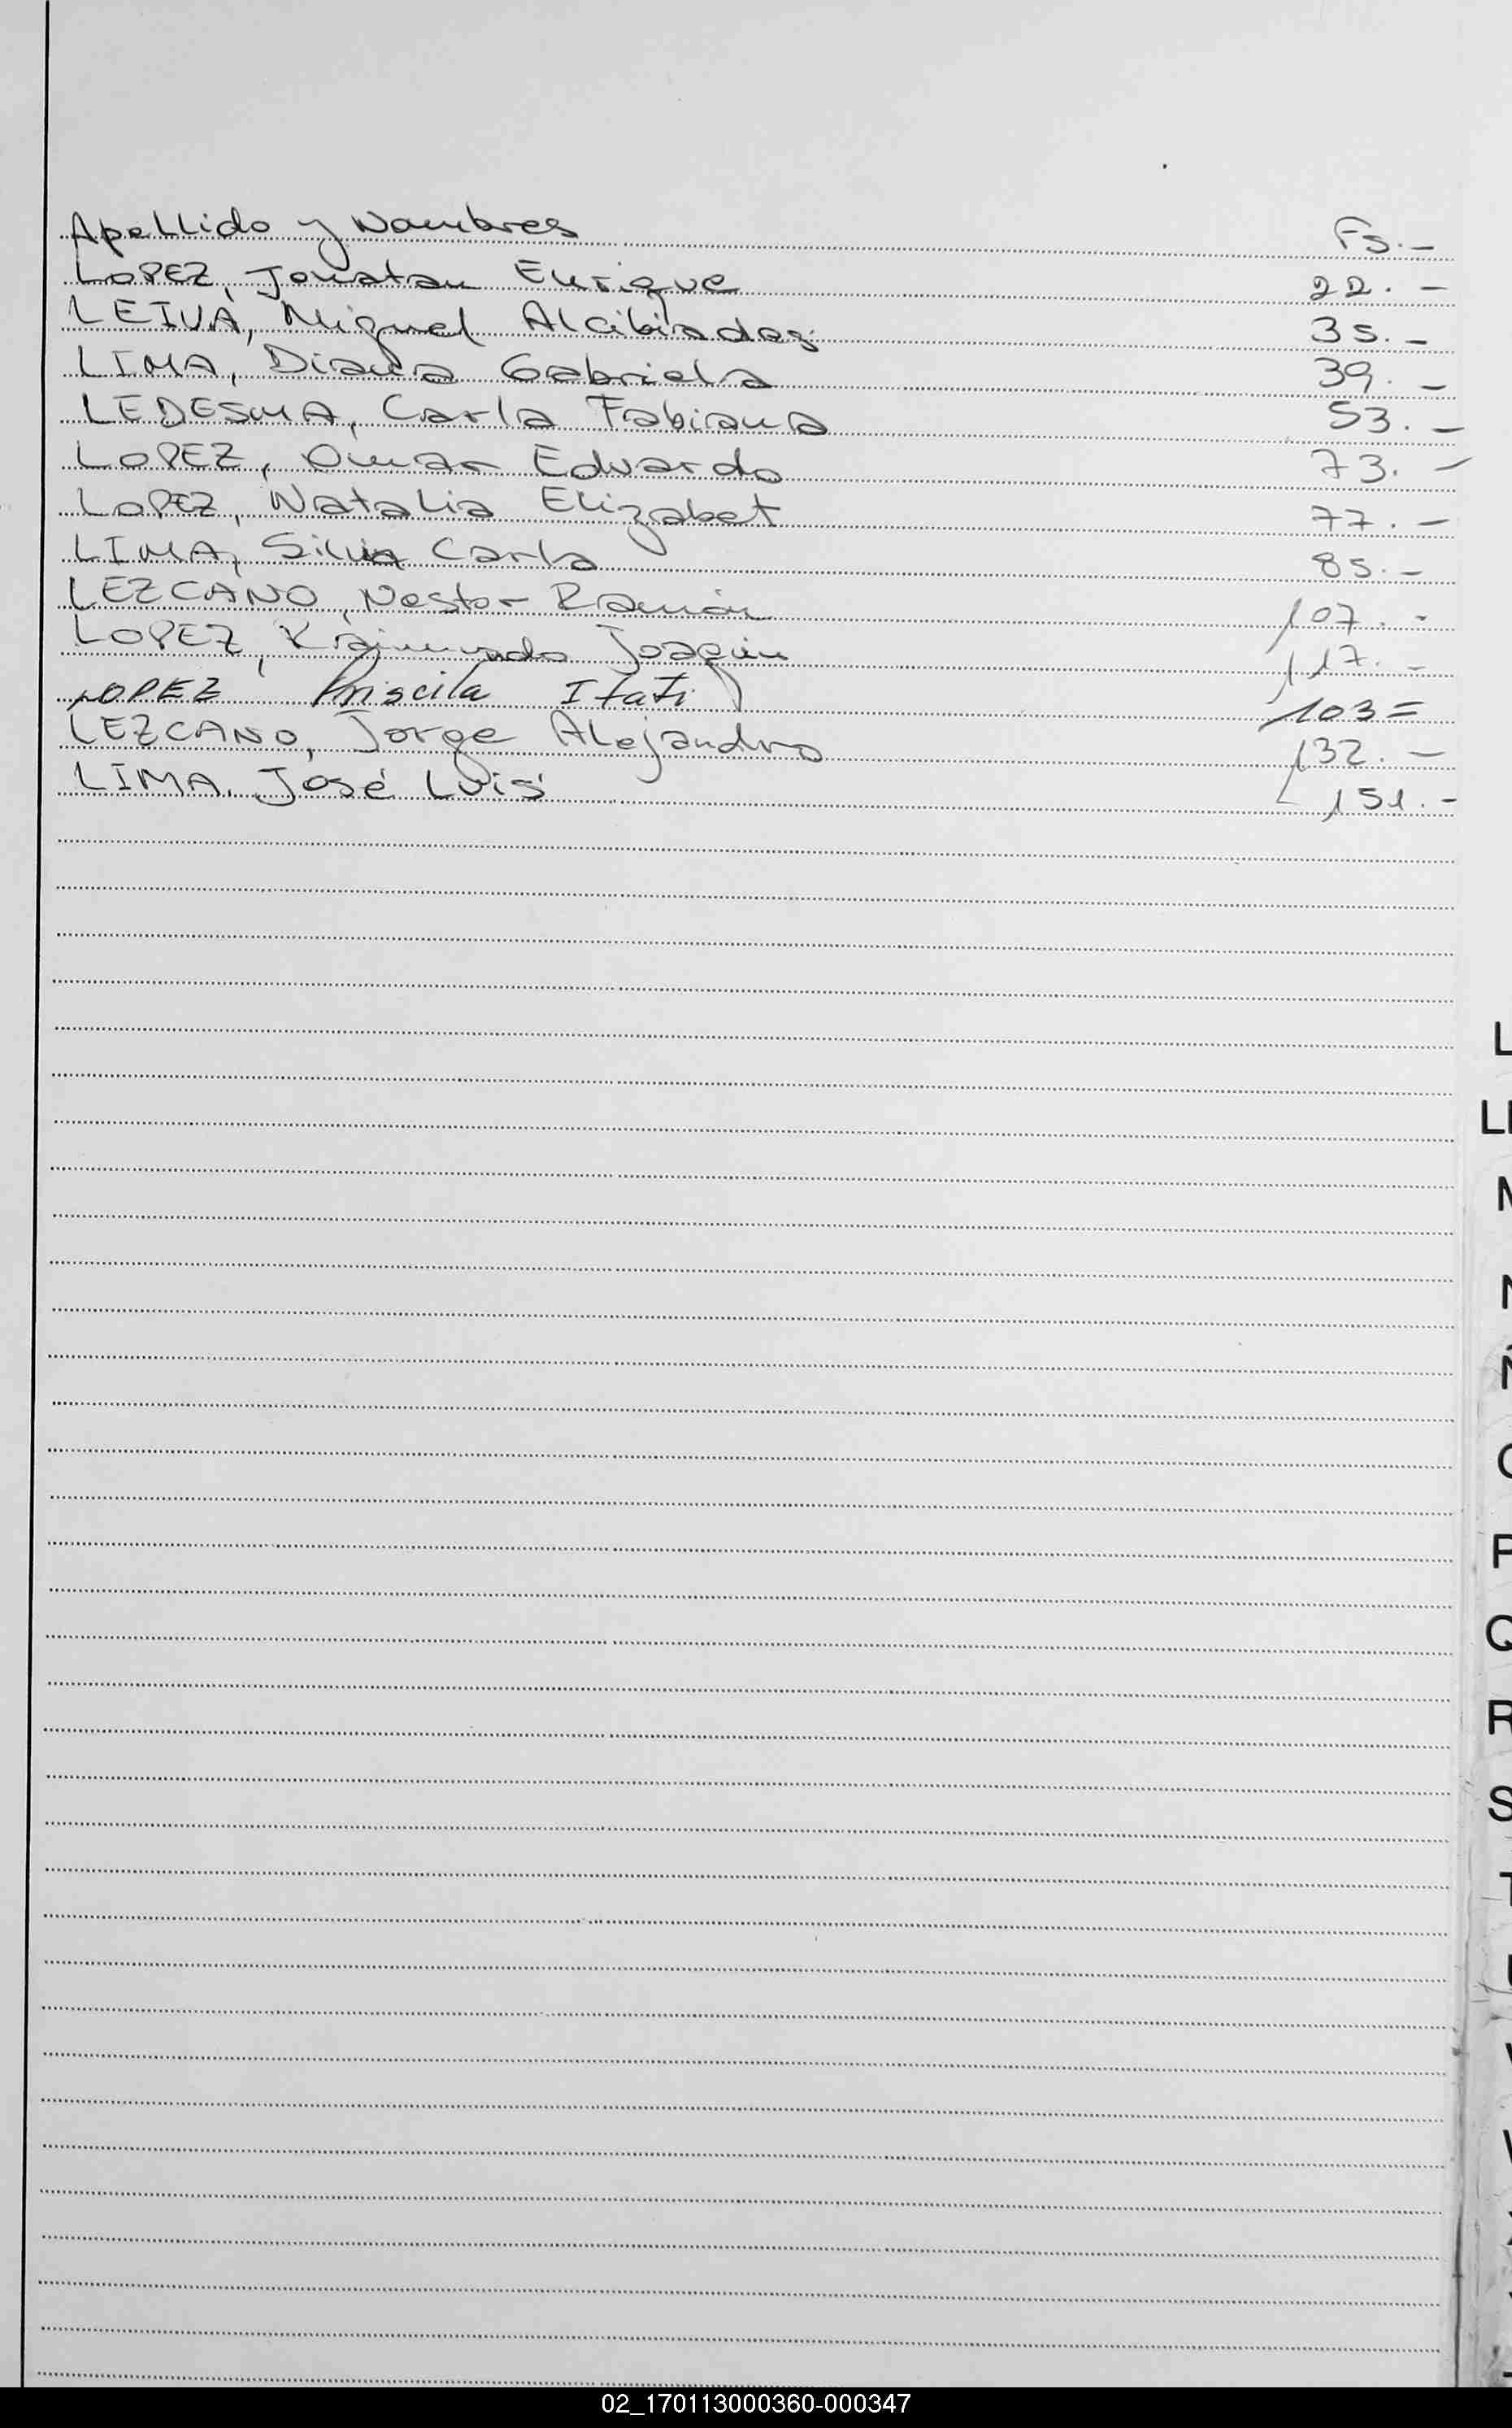 Apellido y Nombres Fs.-
LOPEZ, Jonatan Enrique 22.-
LEIVA, Miguel Alcibiades 35.-
LIMA, Diana Gabriela 39.-
LEDESMA, Carla Fabiana 53.-
LOPEZ, Omar Eduardo 73.-
LOPEZ, Natalia Elizabet 77.-
LIMA, Silvia Carla 85.-
LEZCANO, Nestor Ramón 107.-
LOPEZ, Raimundo Joaquin 117.-
LOPEZ Priscila Itati 103=
LEZCANO, Jorge Alejandro 132.-
LIMA, José Luis 151.-
L
LL
M
N
Ñ
O
P
Q
R
S
T
U
V
W
X
Y
02_170113000360-000347